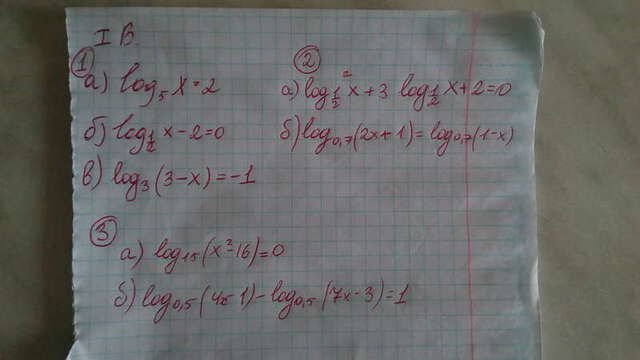 I В.
①
а) log₅ x = 2
б) log_{1/2} x - 2 = 0
в) log₃ (3 - x) = -1
②
а) log²_{1/2} x + 3 log_{1/2} x + 2 = 0
б) log₀,₇ (2x + 1) = log₀,₇ (1 - x)
③
а) log₁₅ (x² - 16) = 0
б) log₀,₅ (4x - 1) - log₀,₅ (7x - 3) = 1